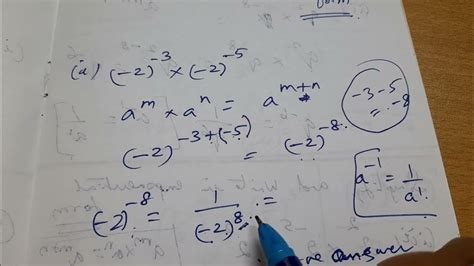 form
(a) (-2)⁻³ × (-2)⁻⁵
aᵐ × aⁿ = aᵐ⁺ⁿ
-3-5
= -8
(-2)⁻³⁺⁽⁻⁵⁾ = (-2)⁻⁸.
a⁻¹ = 1/a¹
(-2)⁻⁸ = 1/(-2)⁸ =
answer